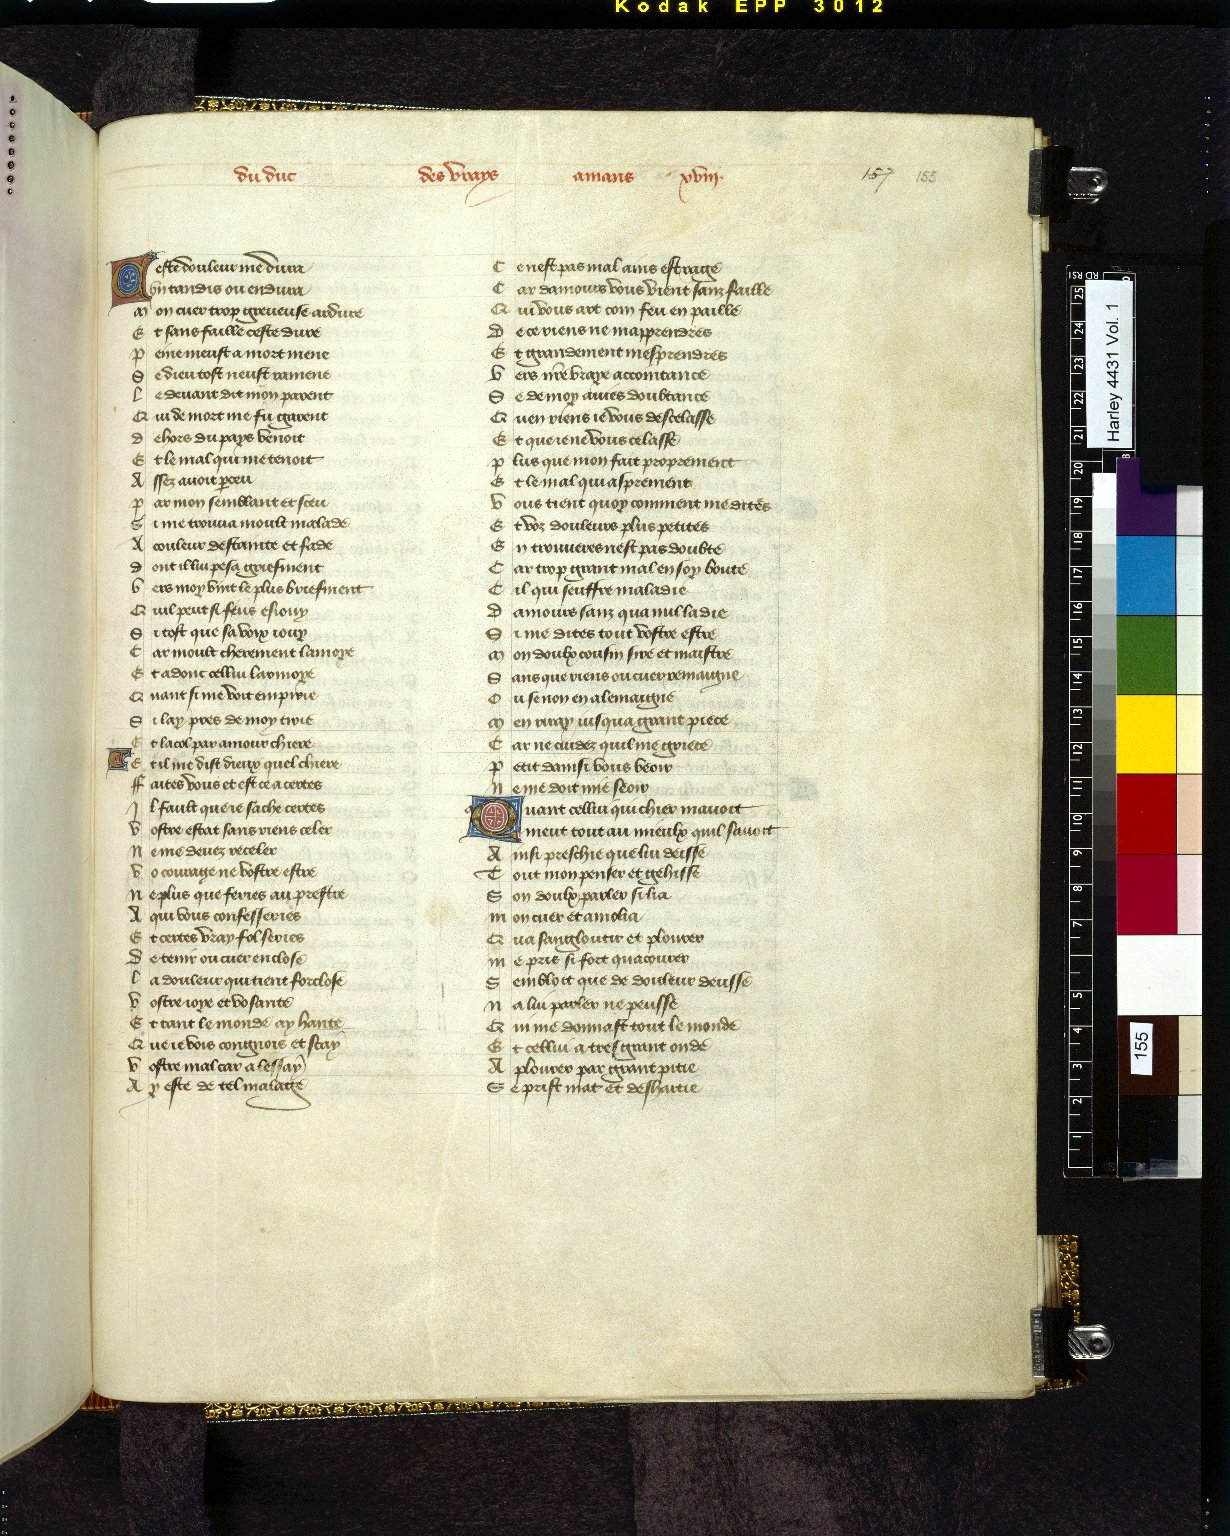 Kodak EPP 3012
du duc des vrays amans xviii
157 155
Ceste douleur me dura
Un tandis ou endura
Mon cuer trop greueuse ardure
Et sans faille ceste dure
Peine meust a mort mene
Se dieu tost neust ramene
Le deuant dit mon parent
Qui de mort me fu garent
dehors du pays venoit
Et le mal qui me tenoit
Assez auoit perceu
Par mon semblant et sceu
Si me trouua moult malade
A couleur destainte et fade
dont il lui pesa griefment
Vers moy vint le plus briefment
Quil peut si feus esiouy
Si tost que sa voix iouy
Car moult chierement lamoye
Et adont cellui larmoye
Quant si me voit empirie
Si lay pres de moy tirie
Et lacol par amour chiere
Et il me dist dieux quel chiere
Faites vous et est ce a certes
Il fault que ie sache certes
Vostre estat sans riens celer
Ne me deuez receler
Vo courage ne vostre estre
Ne plus que feries au prestre
A qui vous confesseries
Et certes vray fol series
De tenir ou cuer enclose
La douleur qui tient forclose
Vostre ioye et vo sante
Et tant le monde ay hante
Que ie vois congnois et scay
Vostre mal car a lessay
Ay este de tel malage
Ce nest pas mal ains est rage
Car damours vous vient sanz faille
Qui vous art com feu en paille
De ce riens ne mapprendres
Et grandement mesprendres
Vers nre vraye accointance
Se de moy auies doubtance
Quen riens ie vous descelasse
Et que ie ne vous celasse
Plus que mon fait proprement
Et le mal qui asprement
Vous tient quoy comment me dites
Et voz douleurs plus petites
En trouueres nest pas doubte
Car trop grant mal en soy boute
Cil qui seuffre maladie
Damours sanz qua nul la die
Si me dites tout vostre estre
Mon doulx cousin sire et maistre
Sans que riens ou cuer remaigne
Ou se non en alemaigne
Men yray iusqua grant piece
Car ne cuidez quil me griece
Petit dainsi vous veoir
Ne me doit mie seoir
Quant cellui qui chier mauoit
Meut tout au mieulx quil sauoit
Ainsi preschie que lui deisse
Tout mon penser et gehisse
Son doulx parler si lia
Mon cuer et amolia
Qua sangloutir et plourer
Me pris si fort quacourer
Sembloit que de douleur deusse
Na lui parler ne peusse
Qui me donnast tout le monde
Et cellui a tres grant onde
A plourer par grant pitie
Se prist mat et deshaitie
Harley 4431 Vol. 1
155